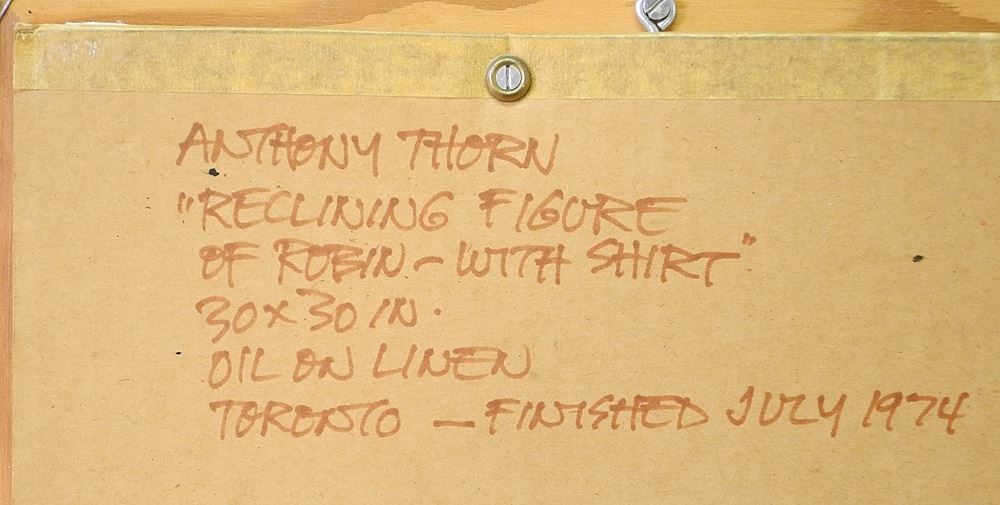 ANTHONY THORN
"RECLINING FIGURE
OF ROBIN - WITH SHIRT"
30 x 30 IN.
OIL ON LINEN
TORONTO — FINISHED JULY 1974